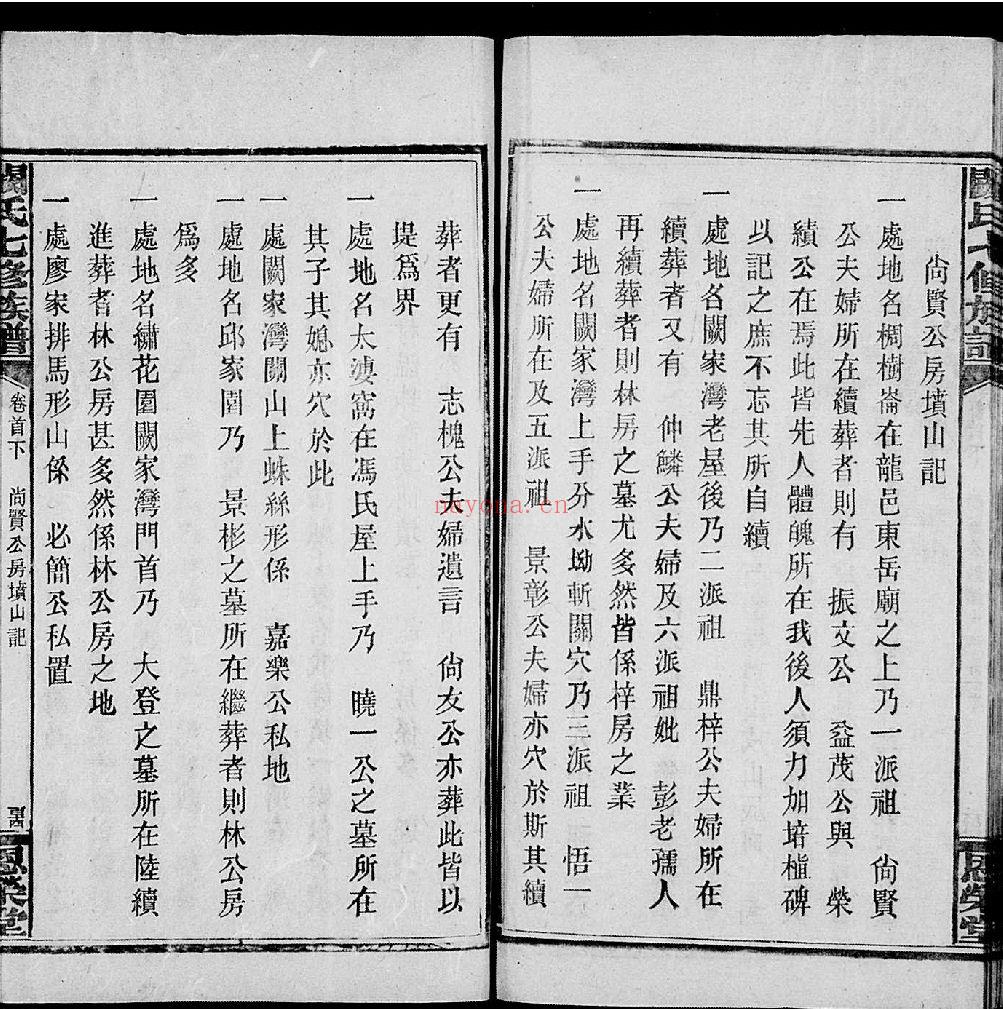 尚賢公房墳山記
一處地名椆樹崙在龍邑東岳廟之上乃一派祖　尚賢
公夫婦所在續葬者則有　振文公　益茂公與　榮
績公在焉此皆先人體魄所在我後人須力加培植碑
以記之庶不忘其所自續
一處地名闕家灣老屋後乃二派祖　鼎梓公夫婦所在
續葬者又有　仲鱗公夫婦及六派祖妣　彭老孺人
再續葬者則林房之墓尤多然皆係梓房之業
一處地名闕家灣上手分水坳斬關穴乃三派祖　悟一
公夫婦所在及五派祖　景彰公夫婦亦穴於斯其續
葬者更有　志槐公夫婦遺言　尚友公亦葬此皆以
堤為界
一處地名太婆窩在馮氏屋上手乃　曉一公之墓所在
其子其媳亦穴於此
一處闕家灣關山上蛛絲形係　嘉樂公私地
一處地名邱家園乃　景彬之墓所在繼葬者則林公房
為多
一處地名繡花園闕家灣門首乃　大登之墓所在陸續
進葬者林公房甚多然係林公房之地
一處廖家排馬形山係　必簡公私置
闕氏七修族譜
卷首下
尚賢公房墳山記
恩榮堂
nayona.cn